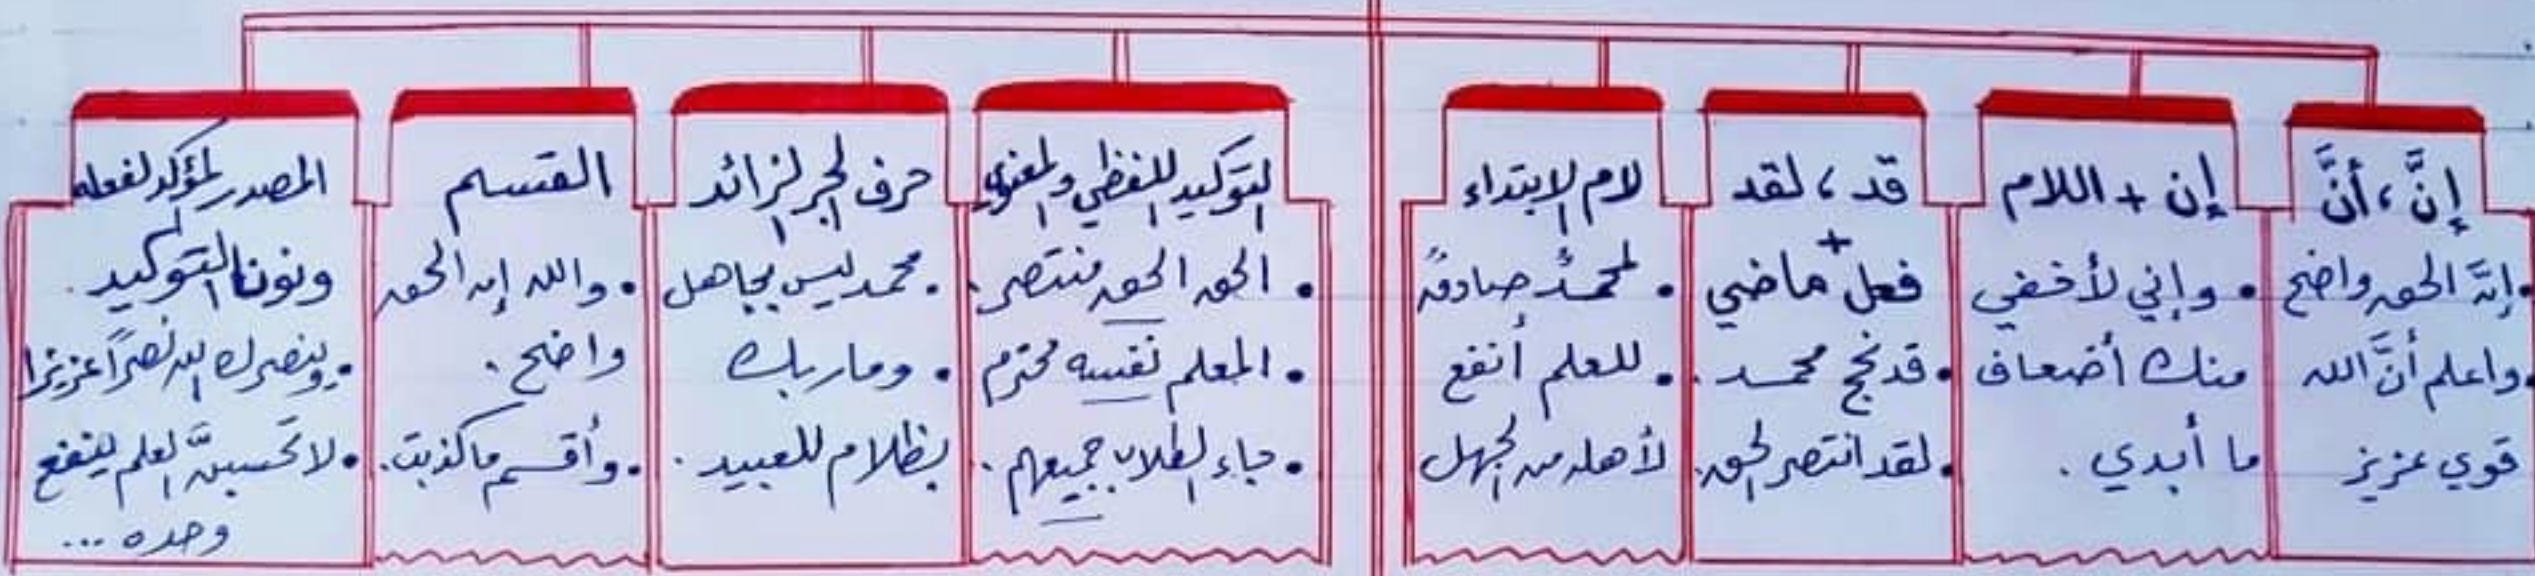 إنَّ، أنَّ
• إنَّ الحق واضح
• واعلم أنَّ الله
قوي عزيز
إن + اللام
• وإني لأخفي
منك أضعاف
ما أبدي.
قد، لقد
+
فعل ماضي
• قد نجح محمد.
• لقد انتصر الحق.
لام الابتداء
• لمحمدٌ صادقٌ
• للعلم أنفع
لأهله من الجهل
التوكيد اللفظي والمعنوي
• الحق الحق منتصر.
• المعلم نفسه محترم
• جاء الطلاب جميعهم.
حرف الجر الزائد
• محمد ليس بجاهل
• وما ربك
بظلام للعبيد.
القسم
• والله إن الحق
واضح.
• وأقسم ما كذبت.
المصدر المؤكد لفعله
ونونا التوكيد.
• وينصرك الله نصراً عزيزا
• لا تحسبنَّ العلم ينفع
وحده ...